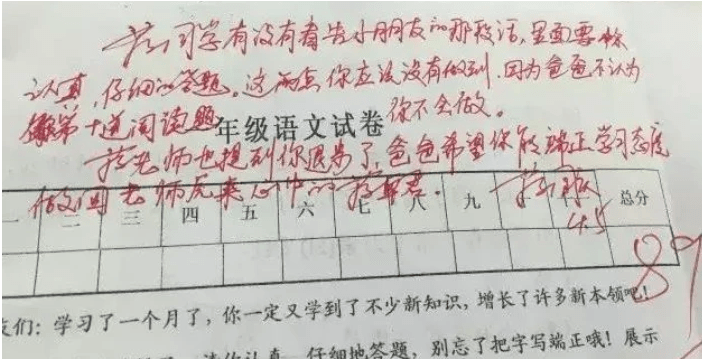 蒋同学有没有看告小朋友的那段话,里面要你
认真,仔细的答题。这两点你应该没有做到.因为爸爸不认为
第十道阅读题 你不会做。
年级语文试卷
蒋老师也提到你退步了,爸爸希望你能端正学习态度
做回老师原来心中的蒋
一 二 三 四 五 六 七 八 九 十 总分
4.5
89
友们:学习了一个月了,你一定又学到了不少新知识,增长了许多新本领吧!
请你认真、仔细地答题,别忘了把字写端正哦!展示